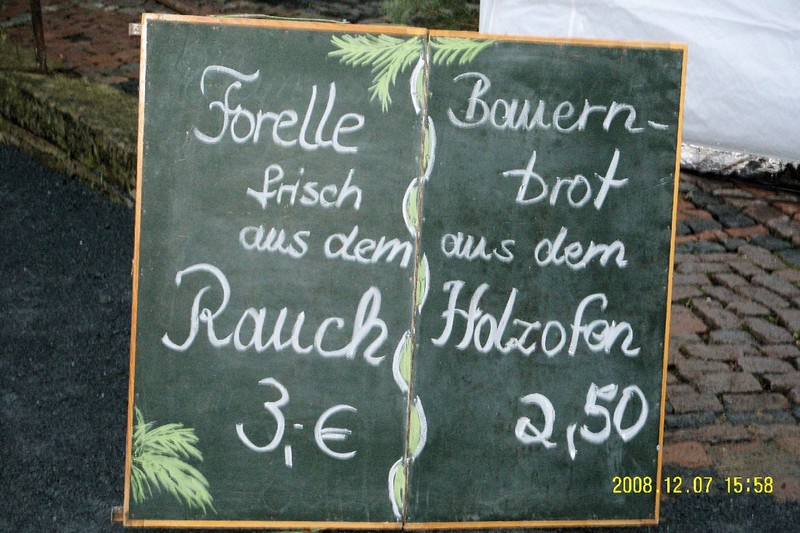 Forelle
frisch
aus dem
Rauch
3,- €
Bauern-
brot
aus dem
Holzofen
2,50
2008.12.07 15:58